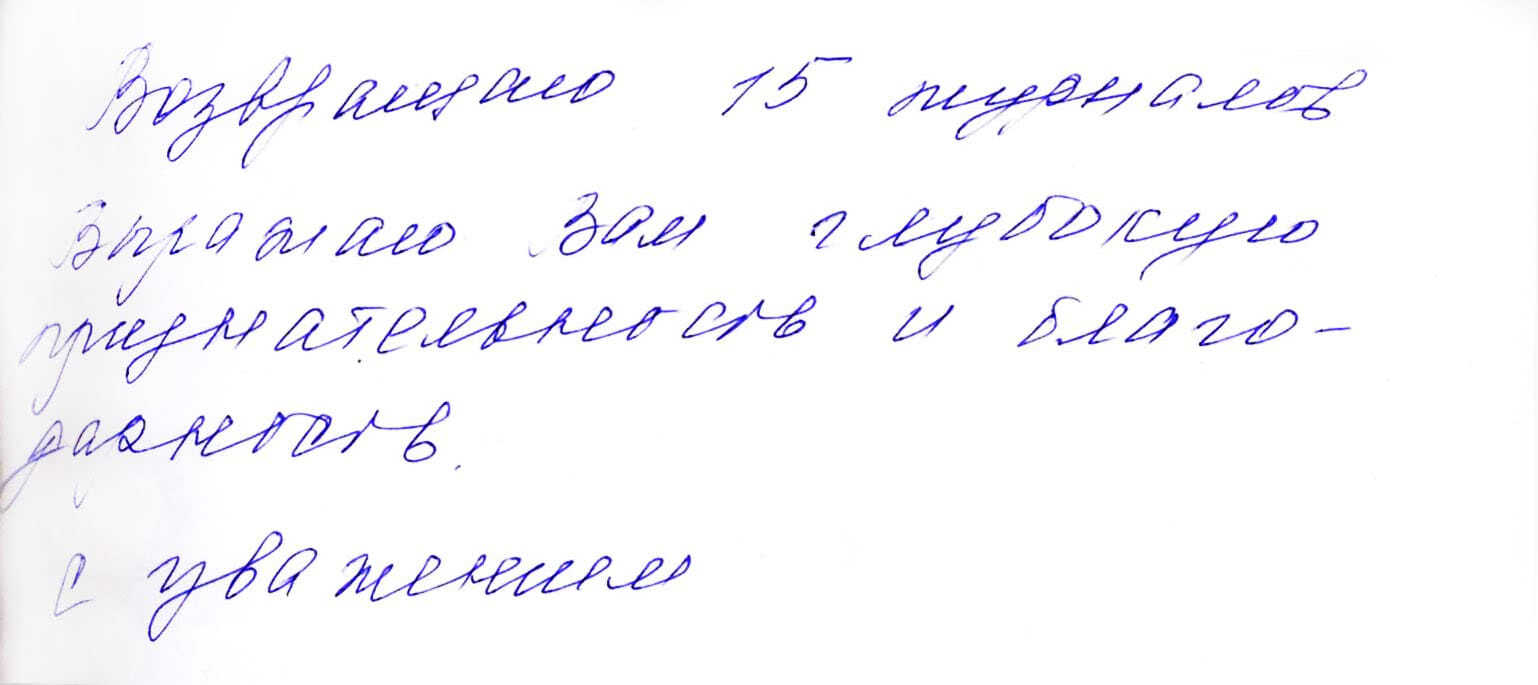 Возвращаю 15 журналов
Выражаю Вам глубокую
признательность и благо-
дарность.
С уважением